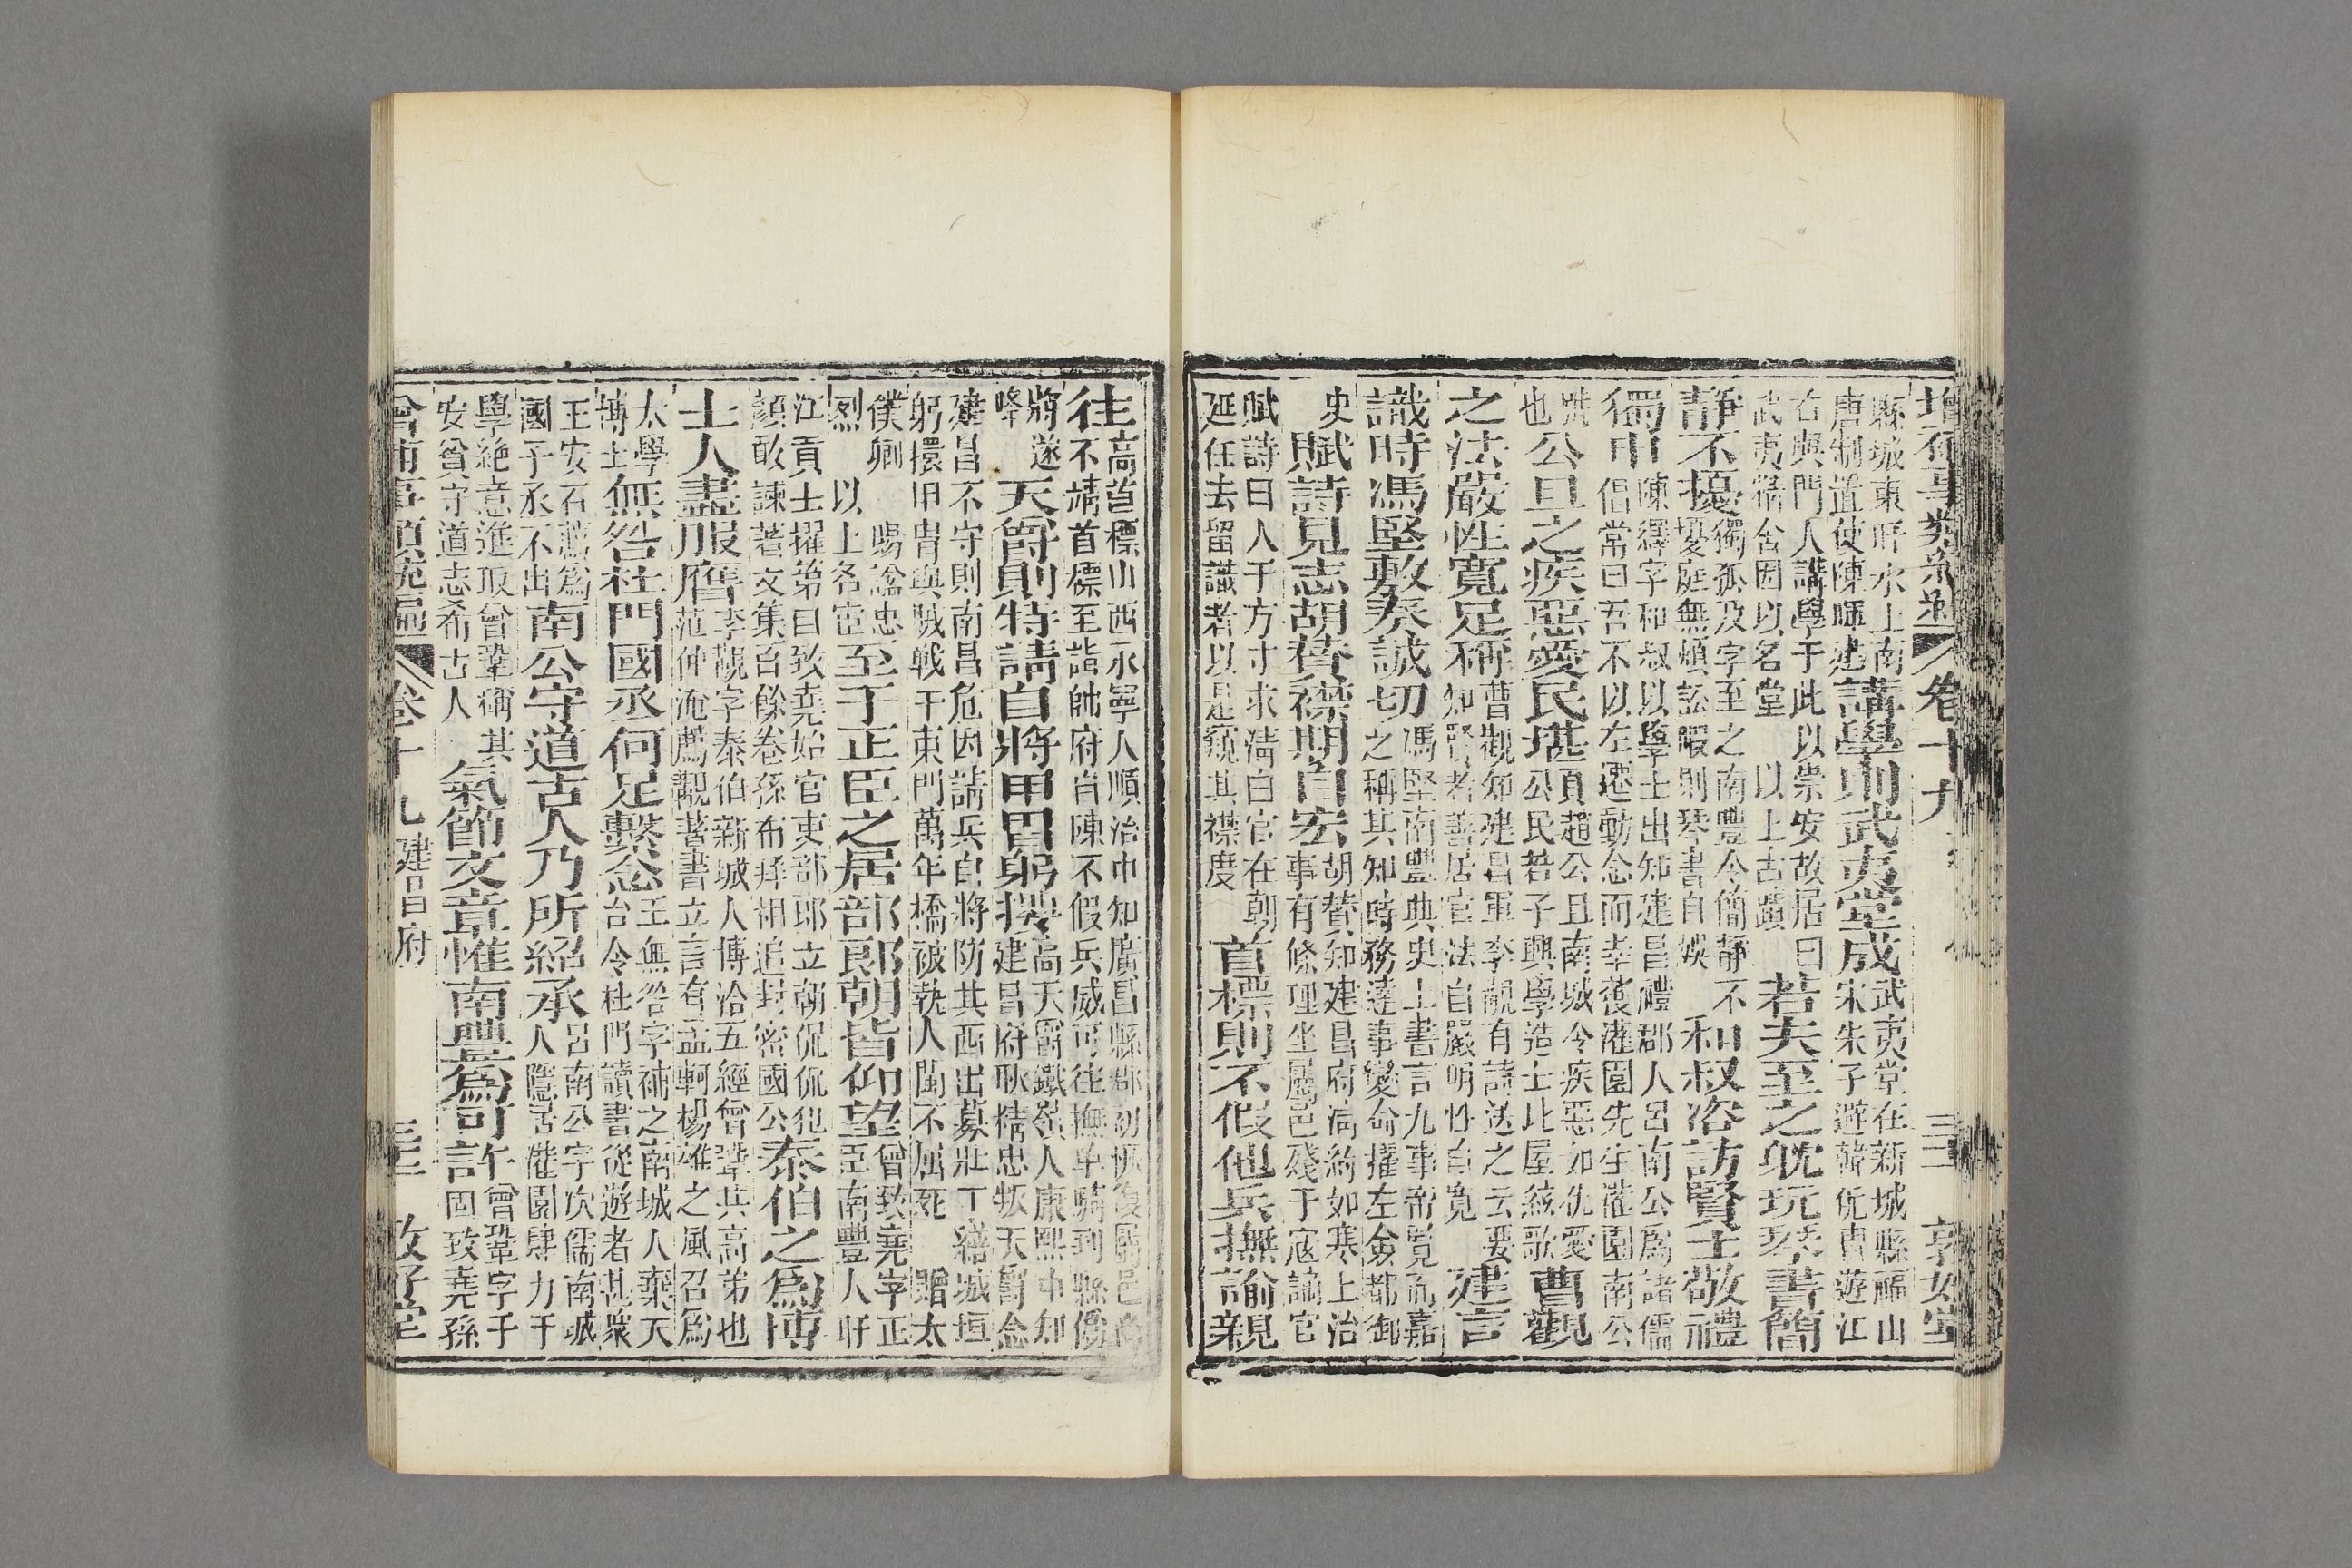 增補事類統編 卷十九 三三 敦好堂
縣城東盱水上南
唐制置使陳暉建
講學則武夷堂成
武夷堂在新城縣福山
宋朱子避韓侂冑遊江
右與門人講學于此以崇安故居曰
武夷精舍因以名堂 以上古蹟
若夫至之躭玩琴書簡
靜不擾
獨孤及字至之南豐令簡靜不
擾庭無煩訟暇則琴書自娛
和叔咨訪賢士敬禮
獨申
陳繹字和叔以學士出知建昌禮郡人呂南公爲諸儒
倡常曰吾不以左遷動念而幸獲灌園先生灌園南公
號
也
公旦之疾惡愛民堪
項趙公旦南城令疾惡如仇愛
公民若子興學造士比屋絃歌
曹觀
之法嚴性寬足稱
曹觀知建昌軍李覯有詩送之云要
知賢者善居官法自嚴明性自寬
建言
識時馮堅敷奏誠切
馮堅南豐典史上書言九事帝覽而嘉
之稱其知時務達事變命擢左僉都御
史
賦詩見志胡贊襟期自宏
胡贊知建昌府清約如寒士治
事有條理坐屬邑殘于寇謫官
賦詩曰人于方寸求清白官在朝
廷任去留識者以是窺其襟度
首標則不假他兵撫諭親
往
高首標山西永寧人順治中知廣昌縣郡初恢復屬邑尚
不靖首標至詣帥府肯陳不假兵威可往撫单騎到縣僞
將遂
降
天爵則特請自將甲冑躬擐
高天爵鐵嶺人康熙中知
建昌府耿精忠叛天爵念
建昌不守則南昌危因請兵自將防其西出募壯丁繕城垣
躬擐甲冑與賊戰于東門萬年橋被執入閩不屈死 贈太
僕卿 賜謚忠
烈 以上名宦
至于正臣之居部郎朝皆仰望
曾致堯字正
臣南豐人盱
江貢士擢第曰致堯始官吏部郎立朝侃侃犯
顏敢諫著文集百餘卷孫布拜相追封密國公
泰伯之爲博
士人盡服膺
李覯字泰伯新城人博洽五經曾鞏其高弟也
范仲淹薦覯著書立言有孟軻楊雄之風召爲
太學
博士
無咎杜門國丞何足繫念
王無咎字補之南城人棄天
台令杜門讀書從遊者甚衆
王安石薦爲
國子丞不出
南公守道古人乃所紹承
呂南公字次儒南城
人隱居灌園肆力于
學絶意進取曾鞏稱其
安貧守道志希古人
氣節文章惟南豐爲可許
曾鞏字子
固致堯孫
曾甫事類統編 卷十九 建昌府 三三 敦好堂